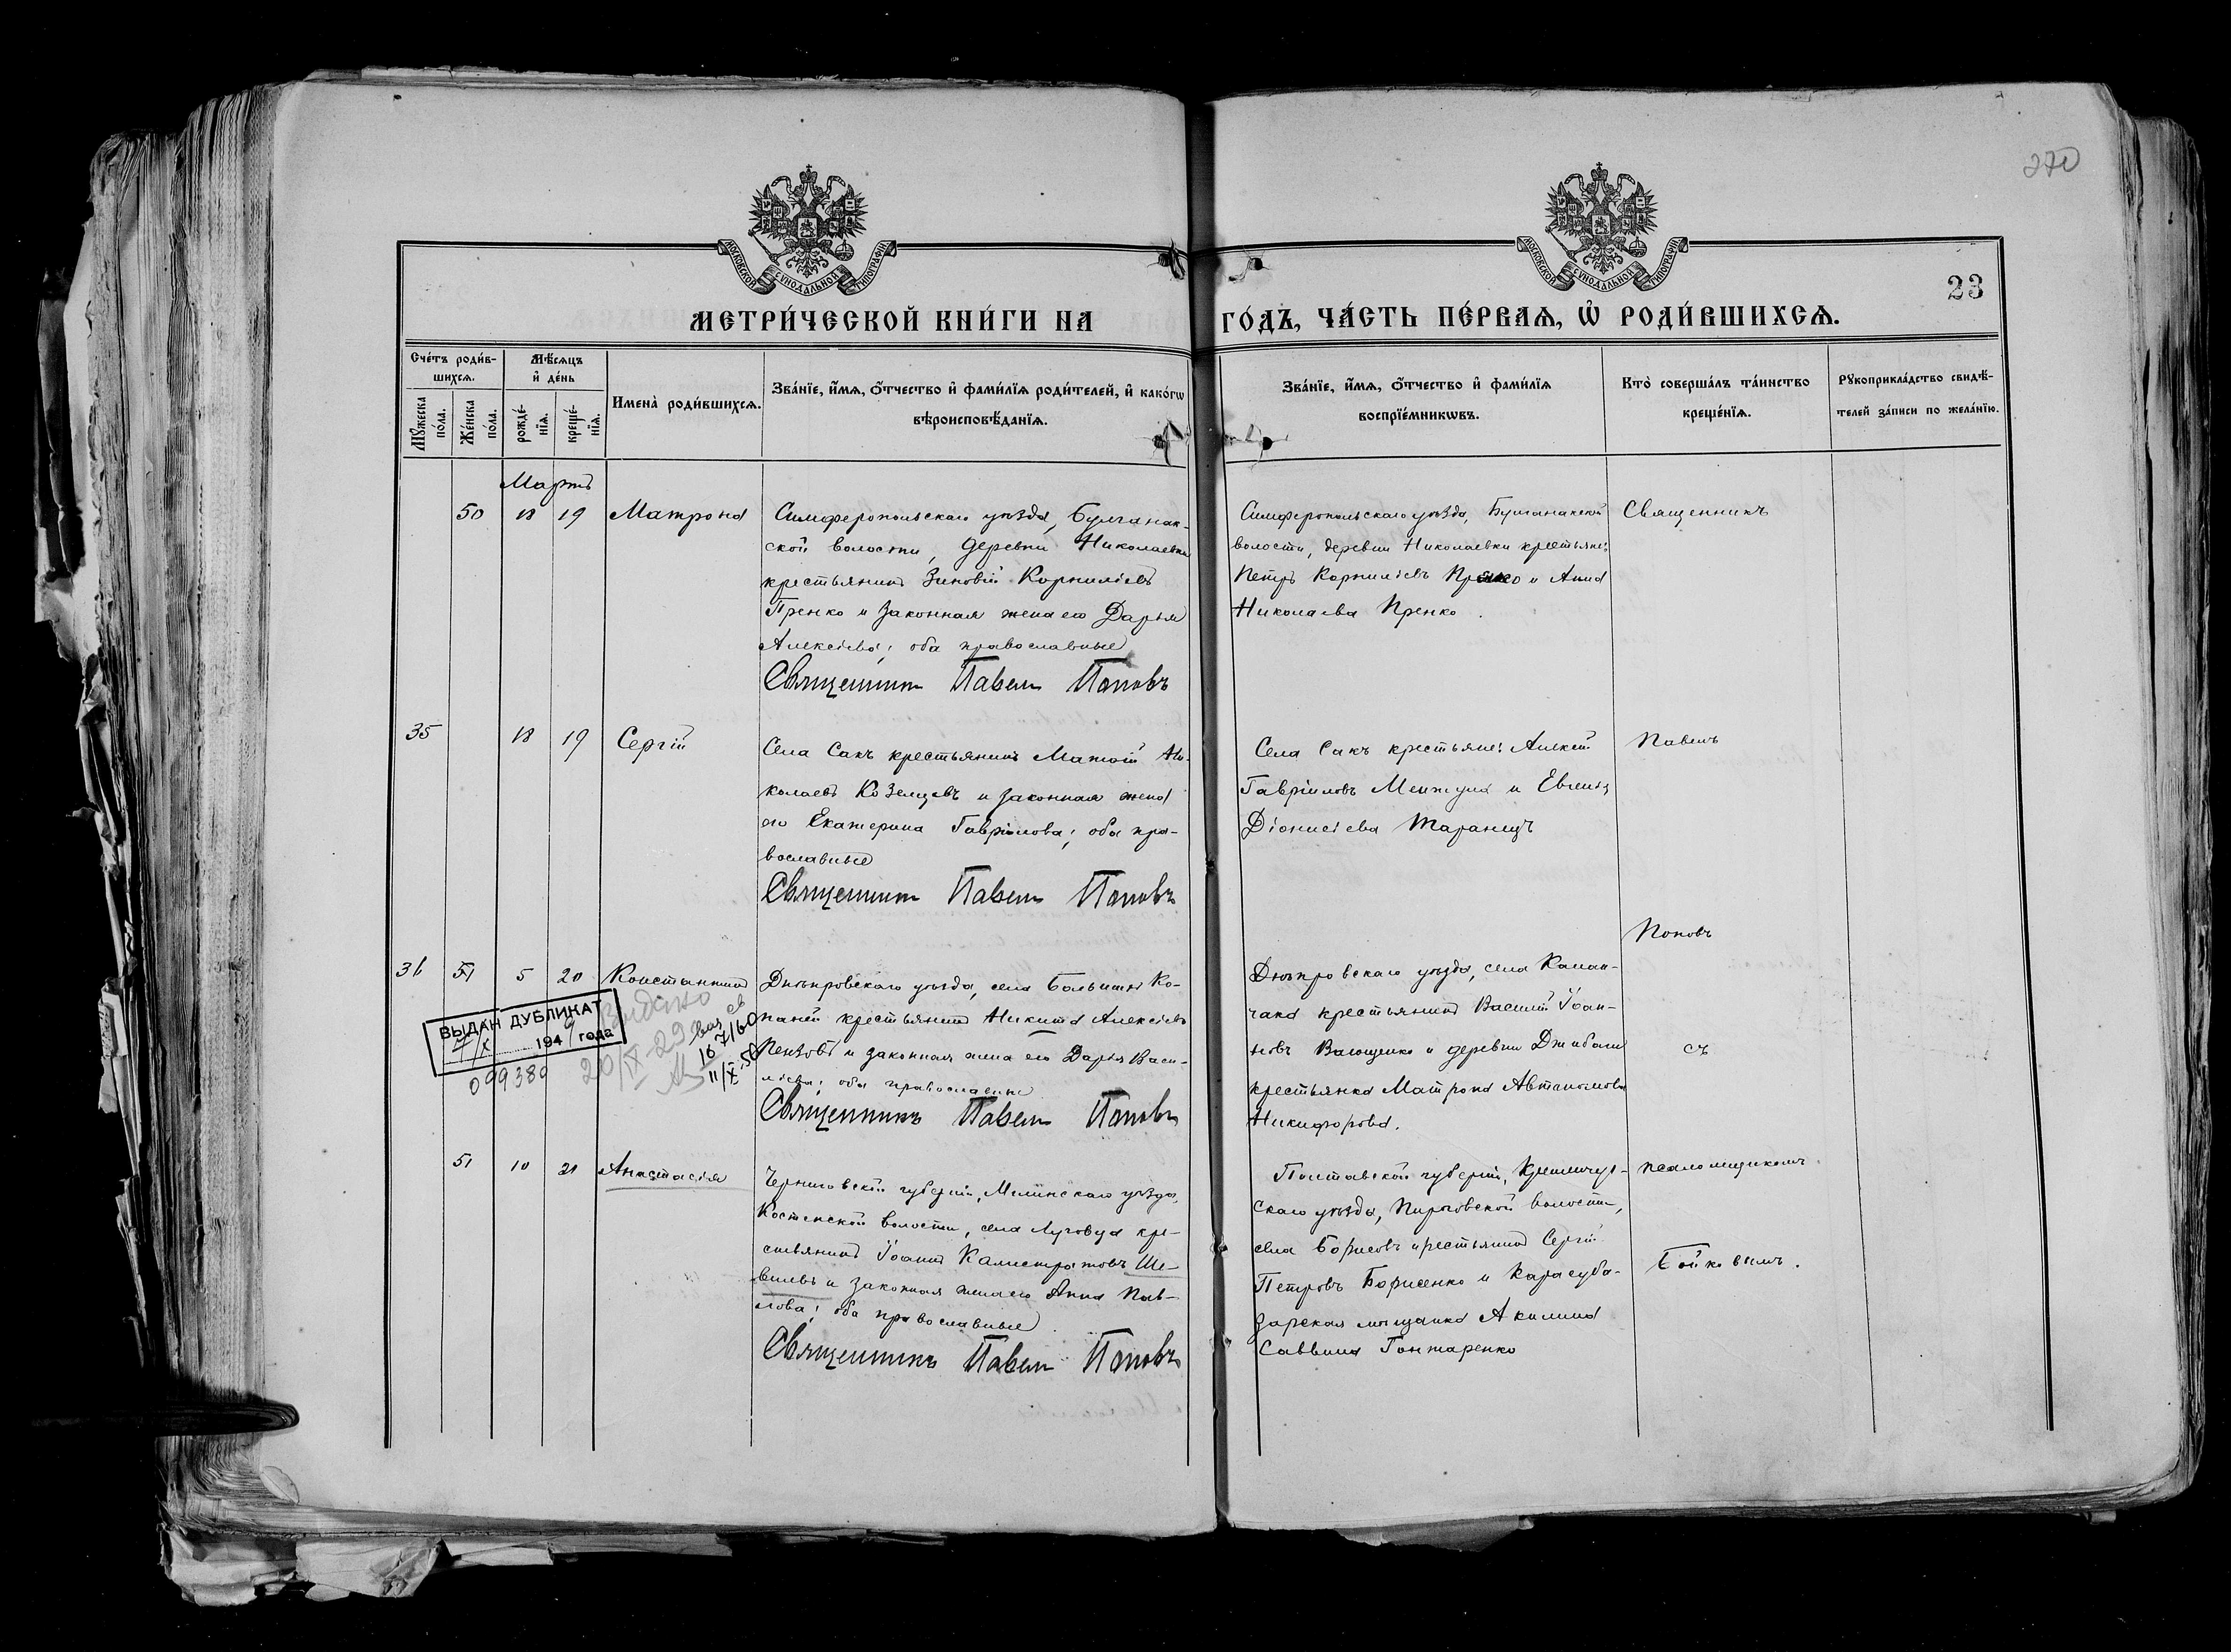 270
МОСКОВСКОЙ СѴНОДАЛЬНОЙ ТИПОГРАФІИ
МОСКОВСКОЙ СѴНОДАЛЬНОЙ ТИПОГРАФІИ
23
МЕТРИ́ЧЕСКОЙ КНИ́ГИ НА
ГО́ДЪ, ЧА́СТЬ ПЕ́РВАѦ, Ѡ҆ РОДИ́ВШИХСѦ.
Сче́тъ роди́в-
шихсѧ.
Мѣ́сѧцъ
и҆ де́нь
Мꙋ́жеска
по́ла.
Же́нска
по́ла.
рожде́-
нїѧ.
креще́-
нїѧ.
Имена̀ роди́вшихсѧ.
Зва́нїе, и҆́мѧ, ѻ҆́тчество и҆ фами́лїѧ роди́телей, и҆ како́гѡ
вѣроисповѣ́данїѧ.
Зва́нїе, и҆́мѧ, ѻ҆́тчество и҆ фами́лїѧ
воспрїе́мникѡвъ.
Кто̀ соверша́лъ та́инство
креще́нїѧ.
Рꙋкоприкла́дство свидѣ́-
телей за́писи по жела́нїю.
Мартъ
50 18 19 Матрона
Симферопольскаго уѣзда, Булганак-
ской волости, деревни Николаевки
крестьянинъ Зиновій Корниліевъ
Пренко и законная жена его Дарья
Алексіева; оба православные
Священникъ Павелъ Поповъ
Симферопольскаго уѣзда, Булганакской
волости, деревни Николаевки крестьяне:
Петръ Корниліевъ Пренко и Анна
Николаева Пренко.
Священникъ
35 18 19 Сергій
Села Сакъ крестьянинъ Матѳій Ни-
колаевъ Козенцевъ и законная жена
его Екатерина Гавріилова; оба пра-
вославные
Священникъ Павелъ Поповъ
Села Сакъ крестьяне: Алексій
Гавріиловъ Менжула и Евгенія
Діонисіева Таранецъ
Павелъ
Поповъ
36 51 5 20 Константинъ
Днѣпровскаго уѣзда, села Большихъ Ко-
паней крестьянинъ Никита Алексіевъ
Пензовъ и законная жена его Дарья Васи-
ліева; оба православные
Священникъ Павелъ Поповъ
ВЫДАН ДУБЛИКАТ
7/X 1949 года
099380
Видано
20/IX-29
167/60
11/X-50
Днѣпровскаго уѣзда, села Калан-
чака крестьянинъ Василій Іоан-
новъ Ващенко и деревни
крестьянка Матрона Автономова
Никифорова.
съ
51 10 21 Анастасія
Черниговской губерніи, Мглинскаго уѣзда,
Костенской волости, села Луговца кре-
стьянинъ Іоаннъ Калистратовъ Ше-
велевъ и законная жена его Анна Пав-
лова; оба православные.
Священникъ Павелъ Поповъ
Полтавской губерніи, Кременчуг-
скаго уѣзда, Пироговской волости,
села Борисовъ крестьянинъ Сергій
Петровъ Борисенко и Карасуба-
зарская мѣщанка Акилина
Саввина Гонтаренко
псаломщикомъ
Бойковымъ.